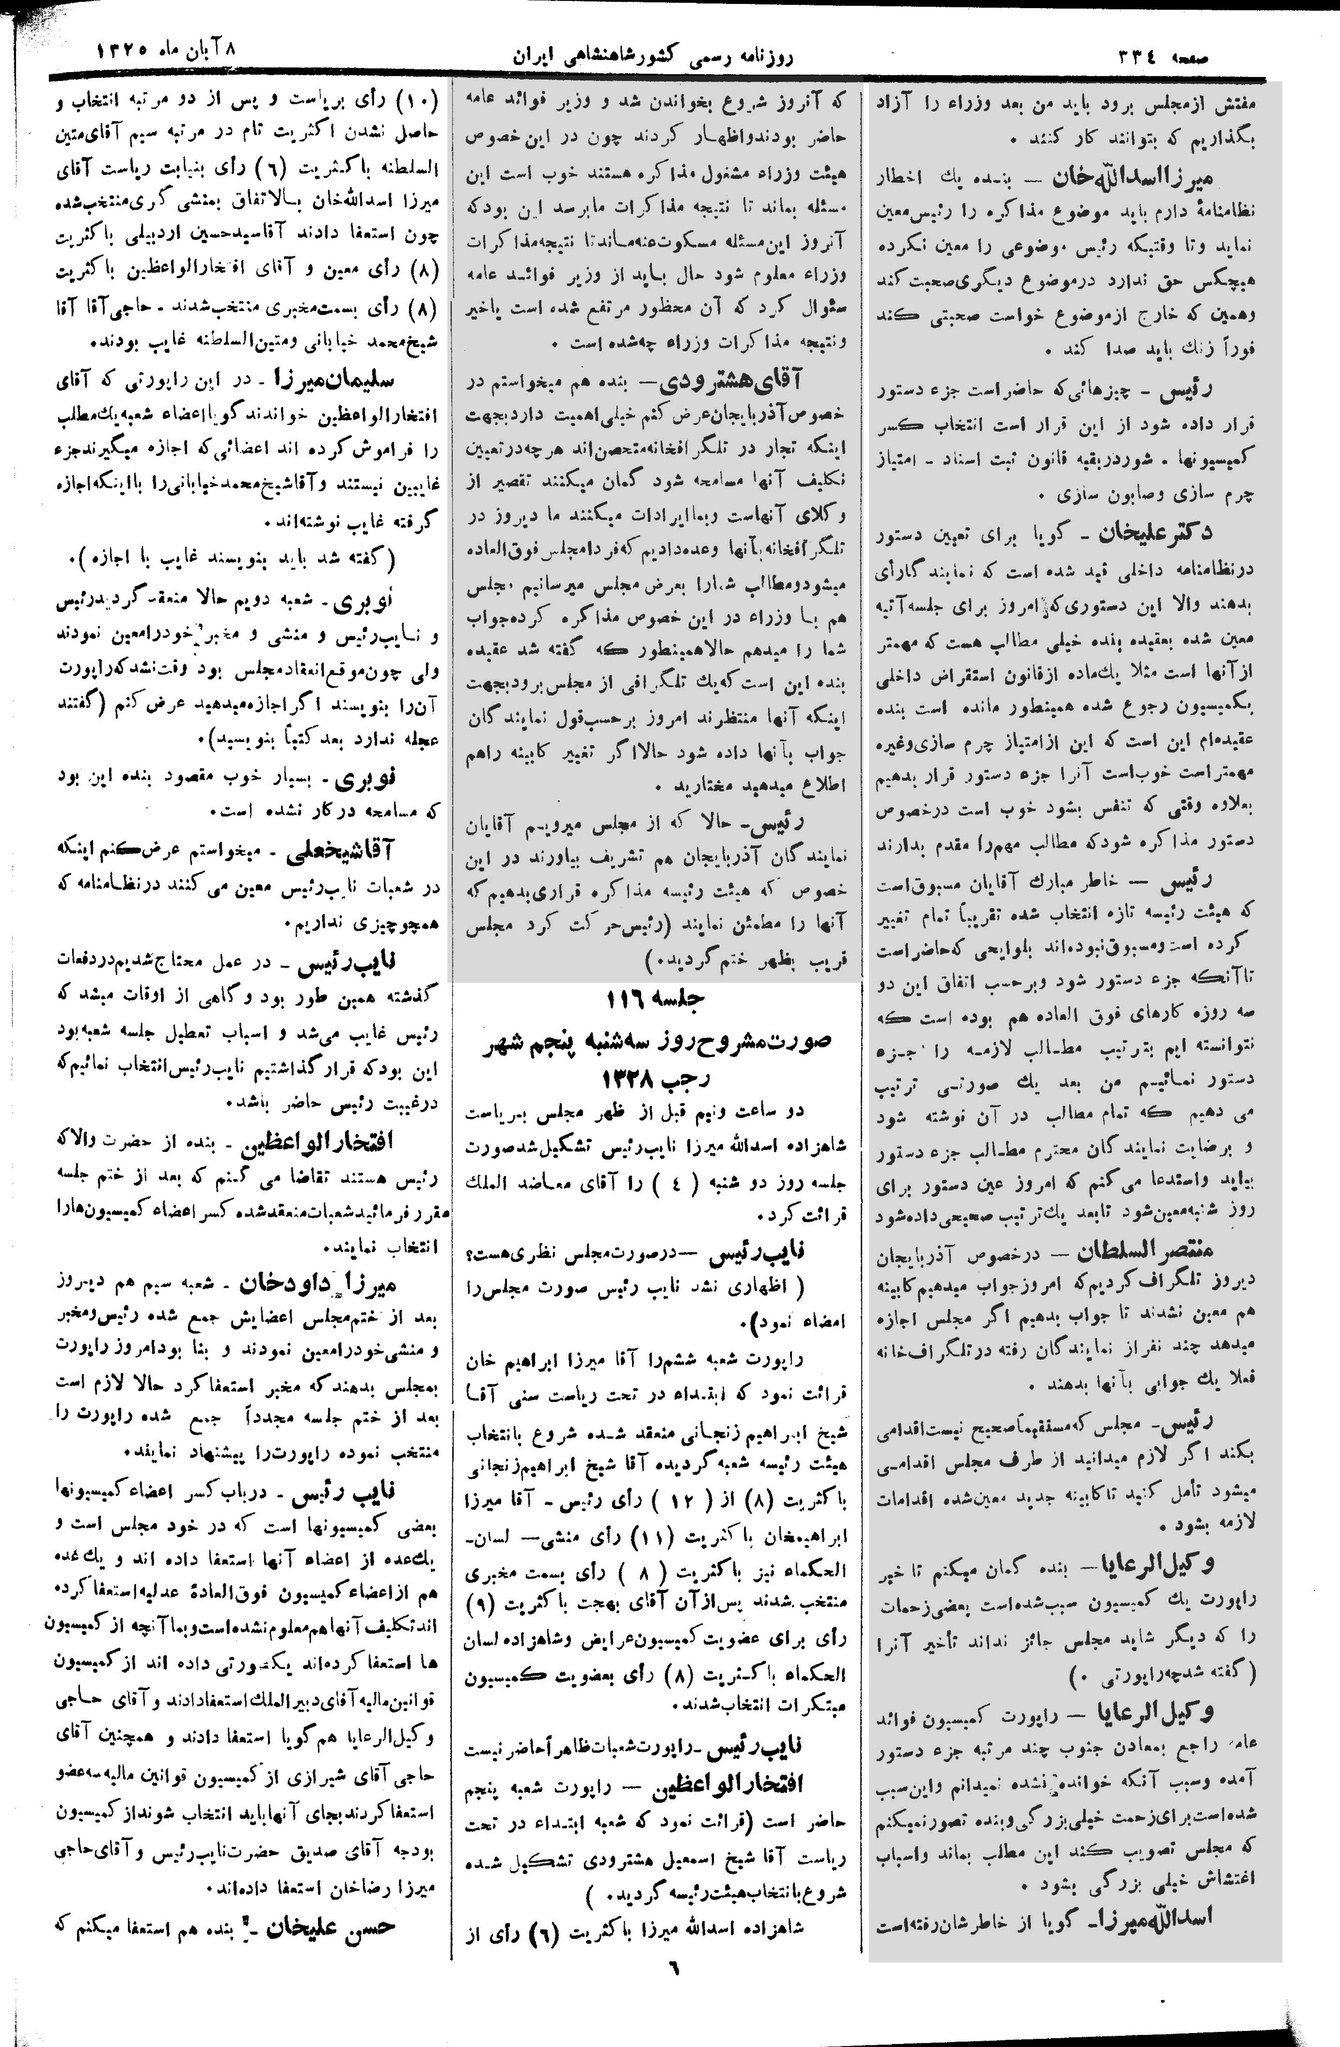 صفحه ۳۳٤
روزنامه رسمی کشور شاهنشاهی ایران
۸ آبان ماه ۱۳۲۵
مفتش از مجلس برود باید من بعد وزراء را آزاد
بگذاریم که بتوانند کار کنند .
میرزا اسدالله خان — بنده یك اخطار
نظامنامهٔ دارم باید موضوع مذاکره را رئیس معین
نماید و تا وقتیکه رئیس موضوعی را معین نکرده
هیچکس حق ندارد در موضوع دیگری صحبت کند
و همین که خارج از موضوع خواست صحبتی کند
فوراً زنك باید صدا کند .
رئیس - چیزهائی که حاضر است جزء دستور
قرار داده شود از این قرار است انتخاب کسر
کمیسیونها . شور در بقیه قانون ثبت اسناد - امتیاز
چرم سازی و صابون سازی .
دکتر علیخان - گویا برای تعیین دستور
در نظامنامه داخلی قید شده است که نمایندگان رأی
بدهند والا این دستوری که امروز برای جلسه آتیه
معین شده بعقیده بنده خیلی مطالب هست که مهمتر
از آنها است مثلا یك ماده از قانون استقراض داخلی
بکمیسیون رجوع شده همینطور مانده است بنده
عقیده‌ام این است که این از امتیاز چرم سازی وغیره
مهمتر است خوب است آنرا جزء دستور قرار بدهیم
بعلاوه وقتی که تنفس بشود خوب است در خصوص
دستور مذاکره شود که مطالب مهم را مقدم بدارند
رئیس — خاطر مبارك آقایان مسبوق است
که هیئت رئیسه تازه انتخاب شده تقریباً تمام تغییر
کرده است و مسبوق نبوده‌اند بلوایحی که حاضر است
تا آنکه جزء دستور شود و برحسب اتفاق این دو
سه روزه کارهای فوق العاده هم بوده است که
نتوانسته ایم بترتیب مطالب لازمه را جزء
دستور نمائیم من بعد یك صورتی ترتیب
می دهیم که تمام مطالب در آن نوشته شود
و برضایت نمایندگان محترم مطالب جزء دستور
بیاید و استدعا می کنم که امروز عین دستور برای
روز شنبه معین شود تا بعد یك ترتیب صحیحی داده شود
منتصر السلطان — در خصوص آذربایجان
دیروز تلگراف کردیم که امروز جواب میدهیم کابینه
هم معین نشدند تا جواب بدهیم اگر مجلس اجازه
میدهد چند نفر از نمایندگان رفته در تلگراف خانه
فعلا یك جوابی بآنها بدهند .
رئیس - مجلس که مستقیماً صحیح نیست اقدامی
بکند اگر لازم میدانید از طرف مجلس اقدامی
میشود تأمل کنید تا کابینه جدید معین شده اقدامات
لازمه بشود .
وکیل الرعایا - بنده گمان میکنم تاخیر
راپورت یك کمیسیون سبب شده است بعضی زحمات
را که دیگر شاید مجلس جائز نداند تأخیر آنرا
(گفته شد چه راپورتی .)
وکیل الرعایا — راپورت کمیسیون فوائد
عامه راجع بمعادن جنوب چند مرتبه جزء دستور
آمده و سبب آنکه خوانده نشده نمیدانم و این سبب
شده است برای زحمت خیلی بزرگی و بنده تصور نمیکنم
که مجلس تصویب کند این مطلب بماند و اسباب
اغتشاش خیلی بزرگی بشود .
اسدالله میرزا - گویا از خاطرشان رفته است
که آنروز شروع بخواندن شد و وزیر فوائد عامه
حاضر بودند و اظهار کردند چون در این خصوص
هیئت وزراء مشغول مذاکره هستند خوب است این
مسئله بماند تا نتیجه مذاکرات ما برسد این بود که
آنروز این مسئله مسکوت عنه ماند تا نتیجه مذاکرات
وزراء معلوم شود حال باید از وزیر فوائد عامه
سئوال کرد که آن محظور مرتفع شده است یا خیر
و نتیجه مذاکرات وزراء چه شده است .
آقای هشترودی — بنده هم میخواستم در
خصوص آذربایجان عرض کنم خیلی اهمیت دارد بجهت
اینکه تجار در تلگرافخانه متحصن اند هر چه در تعیین
تکلیف آنها مسامحه شود گمان میکنند تقصیر از
وکلای آنهاست و بما ایرادات میکنند ما دیروز در
تلگرافخانه بآنها وعده دادیم که فردا مجلس فوق العاده
میشود و مطالب شما را بعرض مجلس میرسانیم مجلس
هم با وزراء در این خصوص مذاکره کرده جواب
شما را میدهم حالا همینطور که گفته شد عقیده
بنده این است که یك تلگرافی از مجلس برود بجهت
اینکه آنها منتظرند امروز برحسب قول نمایندگان
جواب بآنها داده شود حالا اگر تغییر کابینه را هم
اطلاع میدهید مختارید .
رئیس - حالا که از مجلس میرویم آقایان
نمایندگان آذربایجان هم تشریف بیاورند در این
خصوص که هیئت رئیسه مذاکره قراری بدهیم که
آنها را مطمئن نمایند (رئیس حرکت کرد مجلس
قریب بظهر ختم گردید .)
جلسه ۱۱٦
صورت مشروح روز سه شنبه پنجم شهر
رجب ۱۳۲۸
دو ساعت و نیم قبل از ظهر مجلس بریاست
شاهزاده اسدالله میرزا نایب رئیس تشکیل شد صورت
جلسه روز دو شنبه ( ٤ ) را آقای معاضد الملك
قرائت کرد .
نایب رئیس — در صورت مجلس نظری هست؟
( اظهاری نشد نایب رئیس صورت مجلس را
امضاء نمود) .
راپورت شعبه ششم را آقا میرزا ابراهیم خان
قرائت نمود که ابتداء در تحت ریاست سنی آقا
شیخ ابراهیم زنجانی منعقد شده شروع بانتخاب
هیئت رئیسه شعبه گردیده آقا شیخ ابراهیم زنجانی
با کثریت (۸) از ( ۱۲ ) رأی رئیس - آقا میرزا
ابراهیمخان با کثریت (۱۱) رأی منشی — لسان-
الحکماء نیز با کثریت ( ۸ ) رأی بسمت مخبری
منتخب شدند پس از آن آقای بهجت با کثریت (۹)
رأی برای عضویت کمیسیون عرایض و شاهزاده لسان
الحکماء با کثریت (۸) رأی بعضویت کمیسیون
مبتکرات انتخاب شدند .
نایب رئیس - راپورت شعبات ظاهراً حاضر نیست
افتخار الواعظین — راپورت شعبه پنجم
حاضر است (قرائت نمود که شعبه ابتداء در تحت
ریاست آقا شیخ اسمعیل هشترودی تشکیل شده
شروع بانتخاب هیئت رئیسه گردید . )
شاهزاده اسدالله میرزا با کثریت (٦) رأی از
(۱۰) رأی بریاست و پس از دو مرتبه انتخاب و
حاصل نشدن اکثریت تام در مرتبه سیم آقای متین
السلطنه با کثریت (٦) رأی بنیابت ریاست آقای
میرزا اسدالله خان بالاتفاق بمنشی گری منتخب شده
چون استعفا دادند آقا سید حسین اردبیلی با کثریت
(۸) رأی معین و آقای افتخار الواعظین با کثریت
(۸) رأی بسمت مخبری منتخب شدند - حاجی آقا آقا
شیخ محمد خیابانی و متین السلطنه غایب بودند .
سلیمان میرزا - در این راپورتی که آقای
افتخار الواعظین خواندند گویا اعضاء شعبه یك مطلب
را فراموش کرده اند اعضائی که اجازه میگیرند جزء
غایبین نیستند و آقا شیخ محمد خیابانی را با اینکه اجازه
گرفته غایب نوشته‌اند .
(گفته شد باید بنویسند غایب با اجازه) .
نوبری - شعبه دویم حالا منعقد گردید رئیس
و نایب رئیس و منشی و مخبر خود را معین نمودند
ولی چون موقع انعقاد مجلس بود وقت نشد که راپورت
آن را بنویسند اگر اجازه میدهید عرض کنم (گفتند
عجله ندارد بعد کتباً بنویسید) .
نوبری - بسیار خوب مقصود بنده این بود
که مسامحه در کار نشده است .
آقا شیخعلی - میخواستم عرض کنم اینکه
در شعبات نایب رئیس معین می کنند در نظامنامه که
همچو چیزی نداریم .
نایب رئیس - در عمل محتاج شدیم در دفعات
گذشته همین طور بود و گاهی از اوقات میشد که
رئیس غایب می‌شد و اسباب تعطیل جلسه شعبه بود
این بود که قرار گذاشتیم نایب رئیس انتخاب نمائیم که
در غیبت رئیس حاضر باشد .
افتخار الواعظین - بنده از حضرت والا که
رئیس هستند تقاضا می کنم که بعد از ختم جلسه
مقرر فرمائید شعبات منعقد شده کسر اعضاء کمیسیون ها را
انتخاب نمایند .
میرزا داود خان - شعبه سیم هم دیروز
بعد از ختم مجلس اعضایش جمع شده رئیس و مخبر
و منشی خود را معین نمودند و بنا بود امروز راپورت
بمجلس بدهند که مخبر استعفا کرد حالا لازم است
بعد از ختم جلسه مجدداً جمع شده راپورت را
منتخب نموده راپورت را پیشنهاد نمایند .
نایب رئیس - در باب کسر اعضاء کمیسیونها
بعضی کمیسیونها است که در خود مجلس است و
یك عده از اعضاء آنها استعفا داده اند و یك عده
هم از اعضاء کمیسیون فوق العادهٔ عدلیه استعفا کرده
اند تکلیف آنها هم معلوم نشده است و بما آنچه از کمیسیون
ها استعفا کرده‌اند یك صورتی داده اند از کمیسیون
قوانین مالیه آقای دبیر الملك استعفا دادند و آقای حاجی
وکیل الرعایا هم گویا استعفا دادند و همچنین آقای
حاجی آقای شیرازی از کمیسیون قوانین مالیه سه عضو
استعفا کردند بجای آنها باید انتخاب شوند از کمیسیون
بودجه آقای صدیق حضرت نایب رئیس و آقای حاجی
میرزا رضا خان استعفا داده‌اند .
حسن علیخان - بنده هم استعفا میکنم که
٦